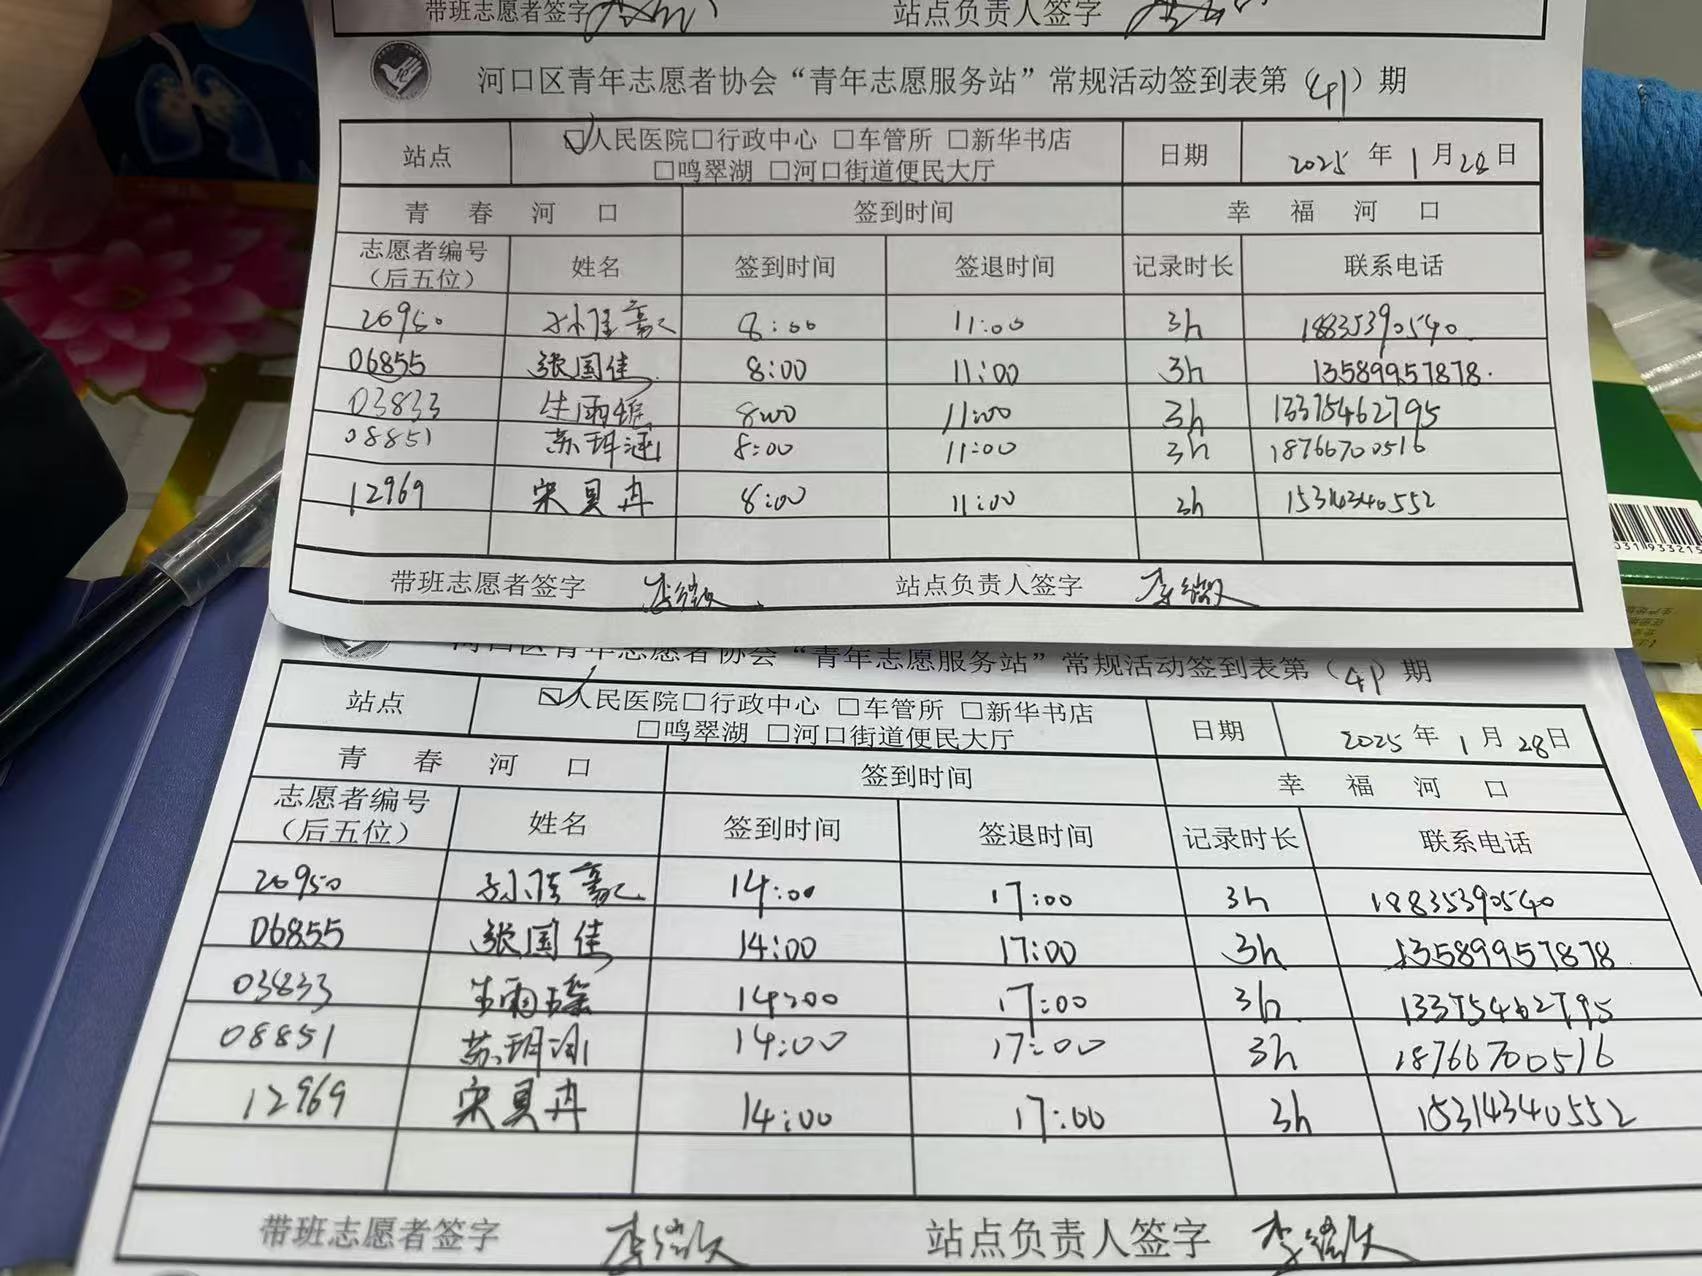 带班志愿者签字 站点负责人签字
河口区青年志愿者协会“青年志愿服务站”常规活动签到表第（41）期
站点 ☑人民医院□行政中心 □车管所 □新华书店 日期 2025 年 1 月 28 日
□鸣翠湖 □河口街道便民大厅
青 春 河 口 签到时间 幸 福 河 口
志愿者编号（后五位） 姓名 签到时间 签退时间 记录时长 联系电话
20950 孙佳 8:00 11:00 3h 18835390540
06855 张国佳 8:00 11:00 3h 13589957878.
03833 生雨 8:00 11:00 3h 13375462795
08851 苏玥涵 8:00 11:00 3h 18766700516
12969 宋贝冉 8:00 11:00 3h 15314340552
带班志愿者签字 站点负责人签字
河口区青年志愿者协会“青年志愿服务站”常规活动签到表第（41）期
站点 ☑人民医院□行政中心 □车管所 □新华书店 日期 2025 年 1 月 28 日
□鸣翠湖 □河口街道便民大厅
青 春 河 口 签到时间 幸 福 河 口
志愿者编号（后五位） 姓名 签到时间 签退时间 记录时长 联系电话
20950 孙佳 14:00 17:00 3h 18835390540
06855 张国佳 14:00 17:00 3h 13589957878
03833 生雨 14:00 17:00 3h 13375462795
08851 苏玥涵 14:00 17:00 3h 18766700516
12969 宋贝冉 14:00 17:00 3h 15314340552
带班志愿者签字 站点负责人签字